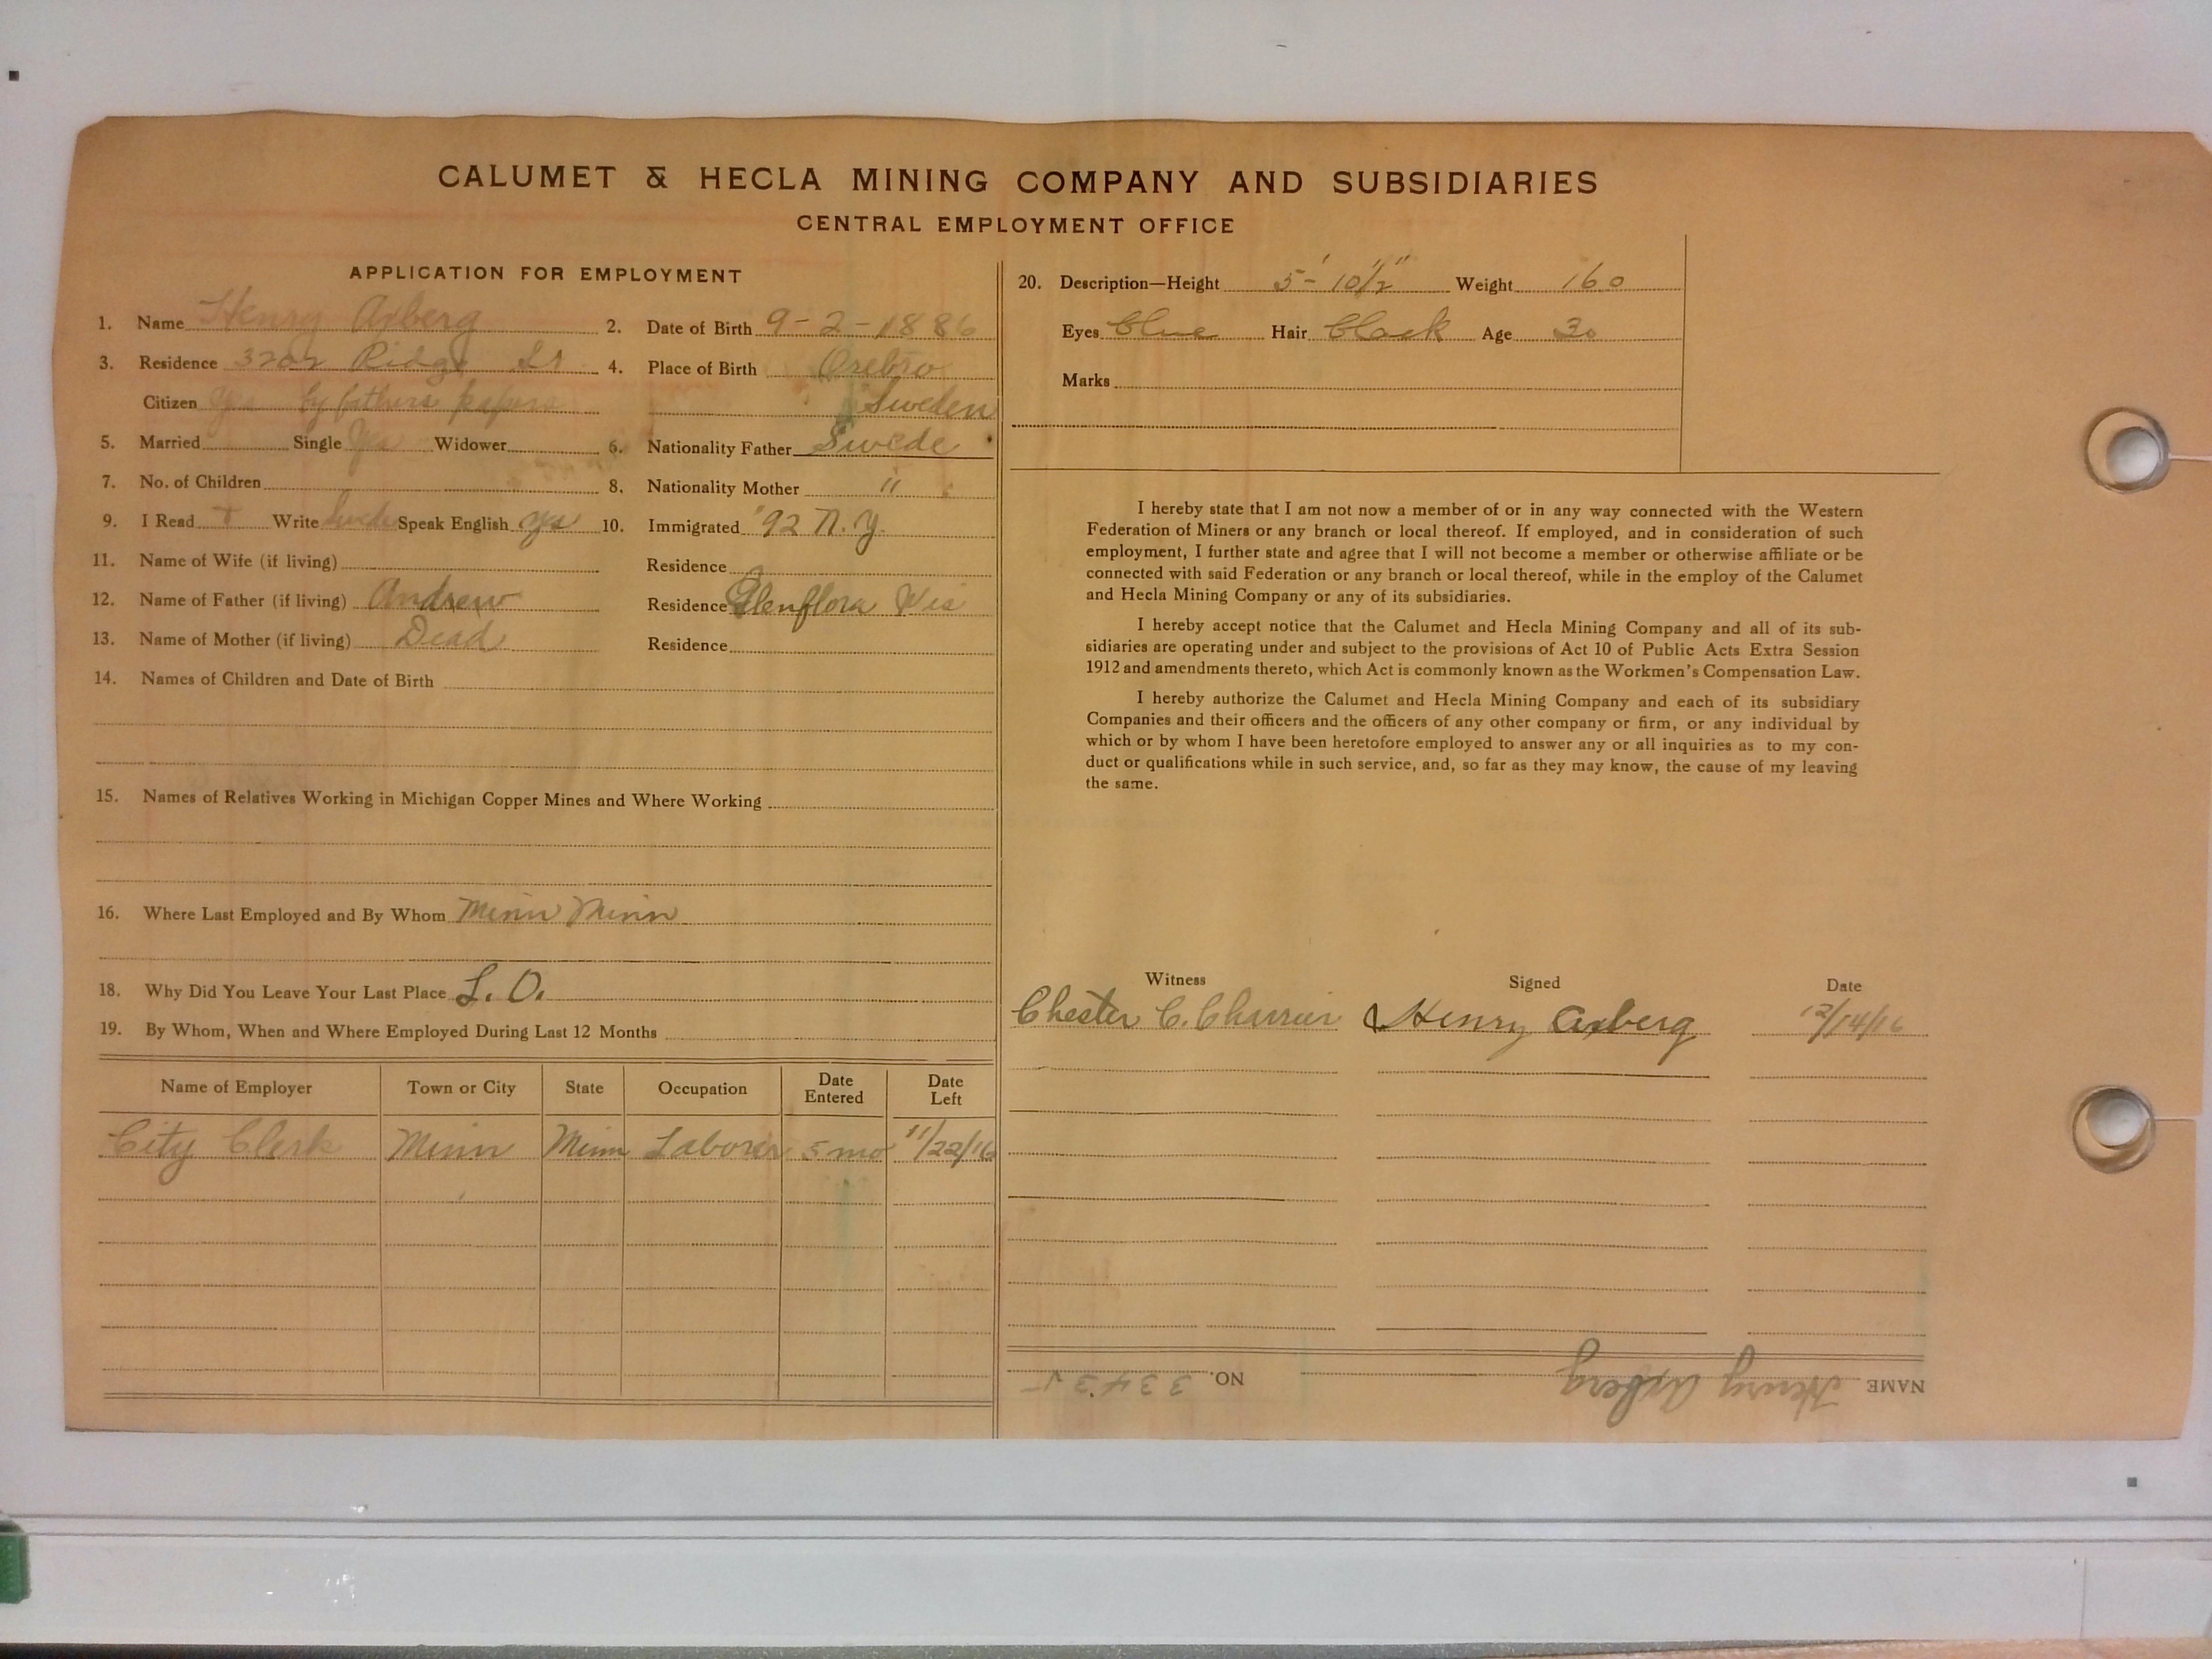 CALUMET & HECLA MINING COMPANY AND SUBSIDIARIES
CENTRAL EMPLOYMENT OFFICE
APPLICATION FOR EMPLOYMENT
1. Name Henry Axberg 2. Date of Birth 9-2-1886
3. Residence Ridge St 4. Place of Birth Orebro
Citizen Yes by fathers papers Sweden
5. Married Single Yes Widower 6. Nationality Father Swede
7. No. of Children 8. Nationality Mother "
9. I Read Write Swede Speak English yes 10. Immigrated '92 N.Y.
11. Name of Wife (if living) Residence
12. Name of Father (if living) Andrew Residence Glenflora Wis
13. Name of Mother (if living) Dead Residence
14. Names of Children and Date of Birth
15. Names of Relatives Working in Michigan Copper Mines and Where Working
16. Where Last Employed and By Whom Minn Minn
18. Why Did You Leave Your Last Place L. O.
19. By Whom, When and Where Employed During Last 12 Months
Name of Employer Town or City State Occupation Date Entered Date Left
City Clerk Minn Minn Laborer 5 mo 11/22/16
20. Description—Height 5'-10 1/2" Weight 160
Eyes blue Hair black Age 30
Marks
I hereby state that I am not now a member of or in any way connected with the Western
Federation of Miners or any branch or local thereof. If employed, and in consideration of such
employment, I further state and agree that I will not become a member or otherwise affiliate or be
connected with said Federation or any branch or local thereof, while in the employ of the Calumet
and Hecla Mining Company or any of its subsidiaries.
I hereby accept notice that the Calumet and Hecla Mining Company and all of its sub-
sidiaries are operating under and subject to the provisions of Act 10 of Public Acts Extra Session
1912 and amendments thereto, which Act is commonly known as the Workmen's Compensation Law.
I hereby authorize the Calumet and Hecla Mining Company and each of its subsidiary
Companies and their officers and the officers of any other company or firm, or any individual by
which or by whom I have been heretofore employed to answer any or all inquiries as to my con-
duct or qualifications while in such service, and, so far as they may know, the cause of my leaving
the same.
Witness Signed Date
Chester C. Henry Axberg 12/14/16
NAME Henry Axberg NO.